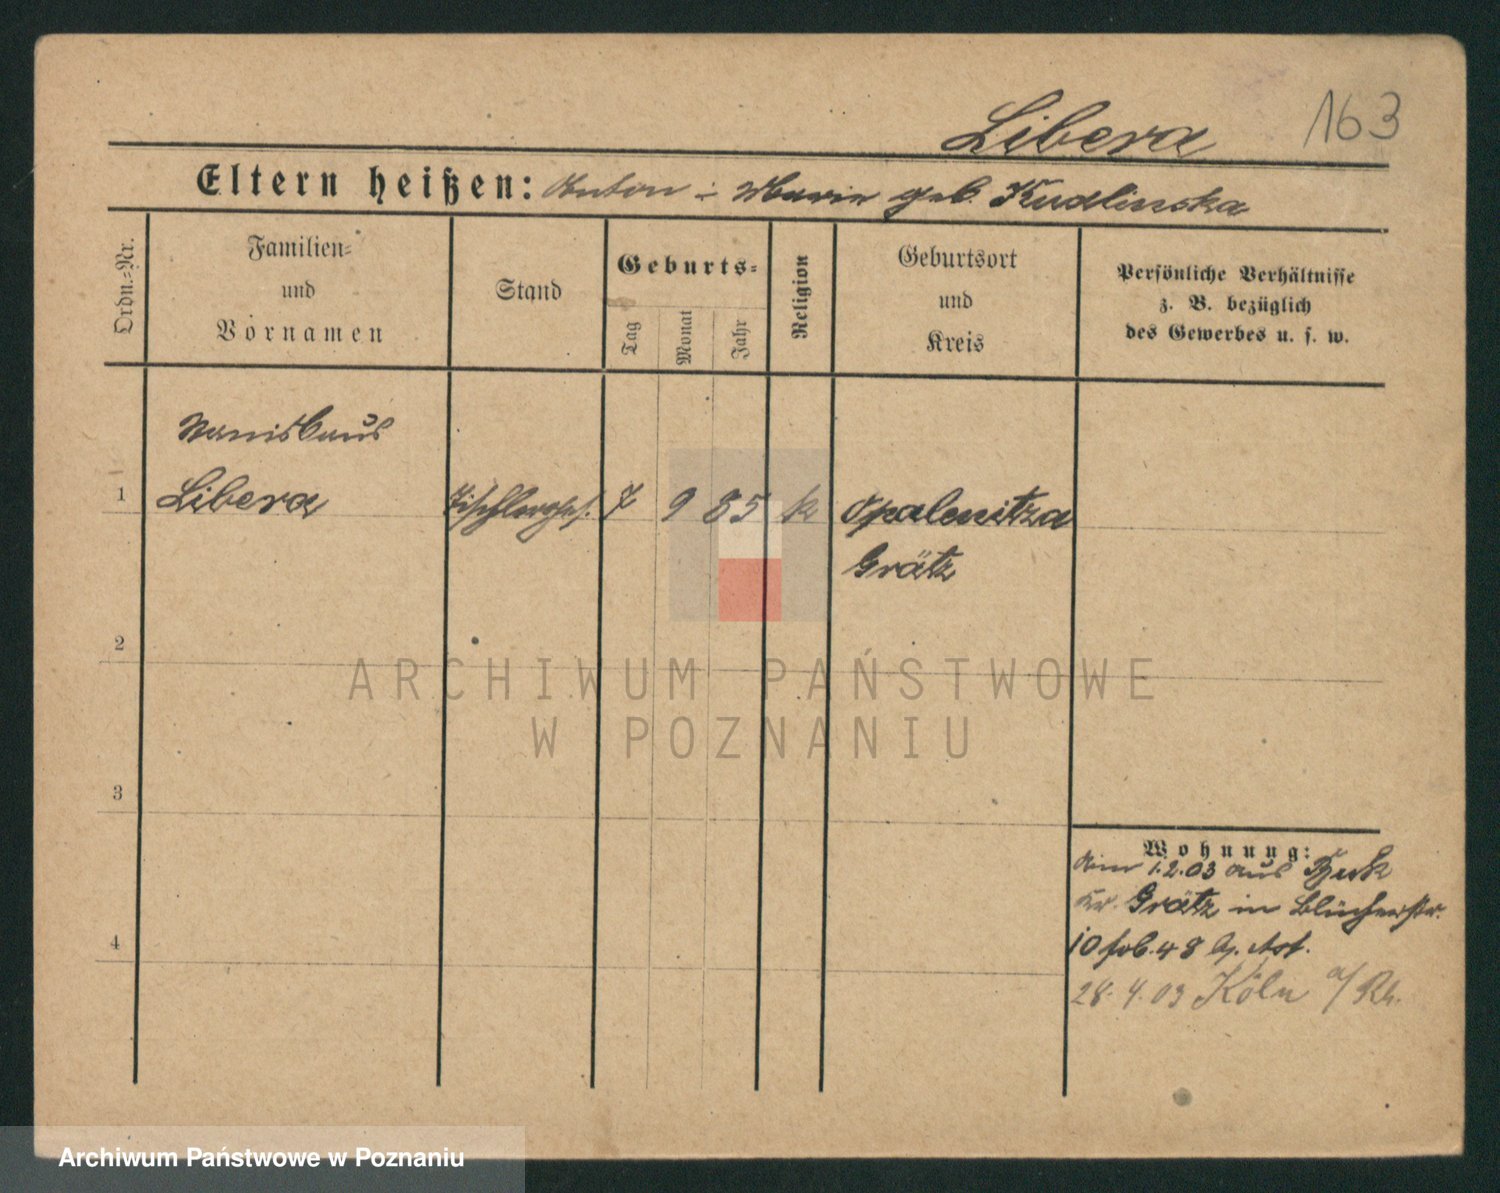 Libera
163
Eltern heißen: Anton - Marie geb. Kudlinska
Ordn.-Nr.
Familien-
und
Vornamen
Stand
Geburts-
Tag
Monat
Jahr
Religion
Geburtsort
und
Kreis
Persönliche Verhältnisse
z. B. bezüglich
des Gewerbes u. s. w.
Stanislaus
1 Libera Tischlerges. 7 9 85 k Opalenitza
Grätz
2
3
4
Wohnung:
1.2.03 aus Buk
Kr. Grätz in Blücherstr.
10
28.4.03 Köln a/Rh.
ARCHIWUM PAŃSTWOWE
W POZNANIU
Archiwum Państwowe w Poznaniu